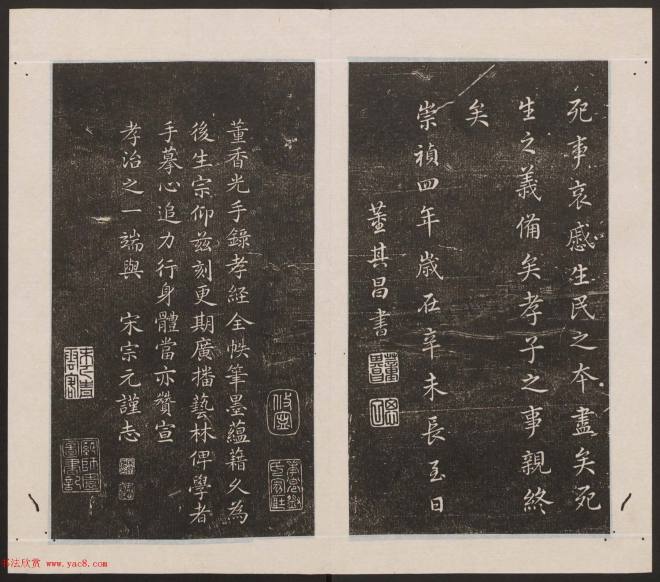 死事哀慼生民之本盡矣死
生之義備矣孝子之事親終
矣
崇禎四年歲在辛未長至日
董其昌書
董香光手錄孝經全帙筆墨蘊藉久為
後生宗仰茲刻更期廣播藝林俾學者
手摹心追力行身體當亦贊宣
孝治之一端與 宋宗元謹志
书法欣赏 www.yac8.com